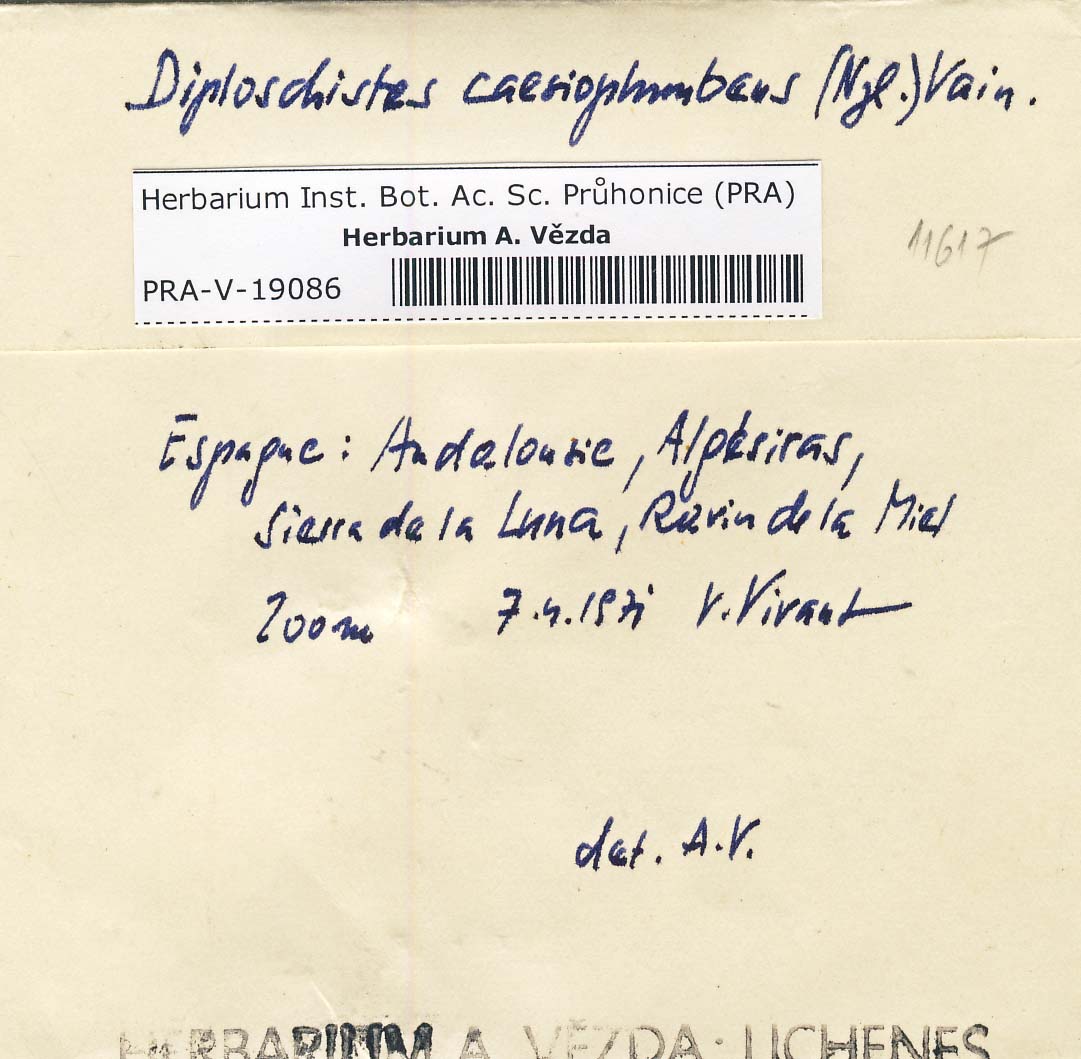 Diploschistes caesioplumbeus (Nyl.) Vain.
Herbarium Inst. Bot. Ac. Sc. Průhonice (PRA)
Herbarium A. Vězda
11617
PRA-V-19086
Espagne: Andalousie, Algésiras,
Sierra de la Luna, Ravin de la Miel
200m 7.4.1971 V. Vivant
det. A.V.
HERBARIUM A. VĚZDA: LICHENES